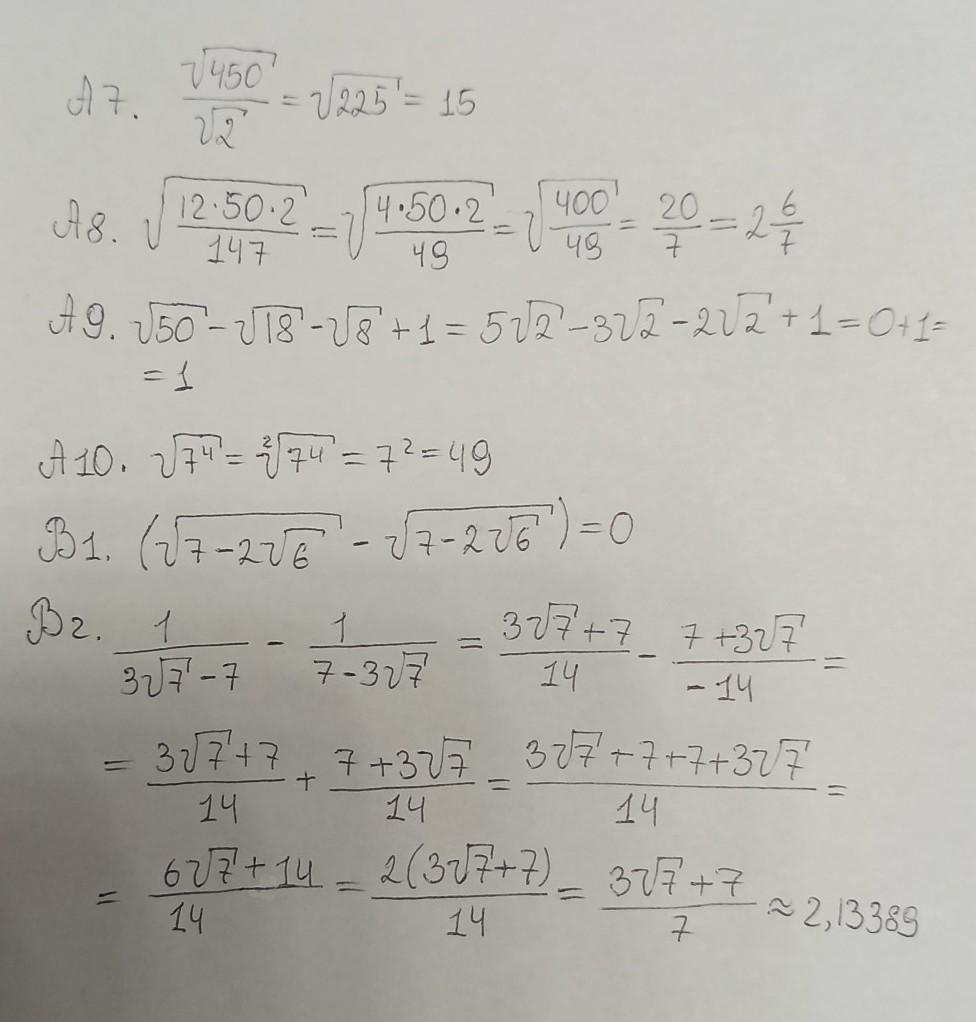 А7. √450/√2 = √225 = 15
А8. √(12·50·2/147) = √(4·50·2/49) = √(400/49) = 20/7 = 2 6/7
А9. √50 - √18 - √8 + 1 = 5√2 - 3√2 - 2√2 + 1 = 0+1=
= 1
А10. √7⁴ = ²√7⁴ = 7² = 49
В1. (√(7-2√6) - √(7-2√6)) = 0
В2. 1/(3√7-7) - 1/(7-3√7) = (3√7+7)/14 - (7+3√7)/-14 =
= (3√7+7)/14 + (7+3√7)/14 = (3√7+7+7+3√7)/14 =
= (6√7+14)/14 = 2(3√7+7)/14 = (3√7+7)/7 ≈ 2,13389